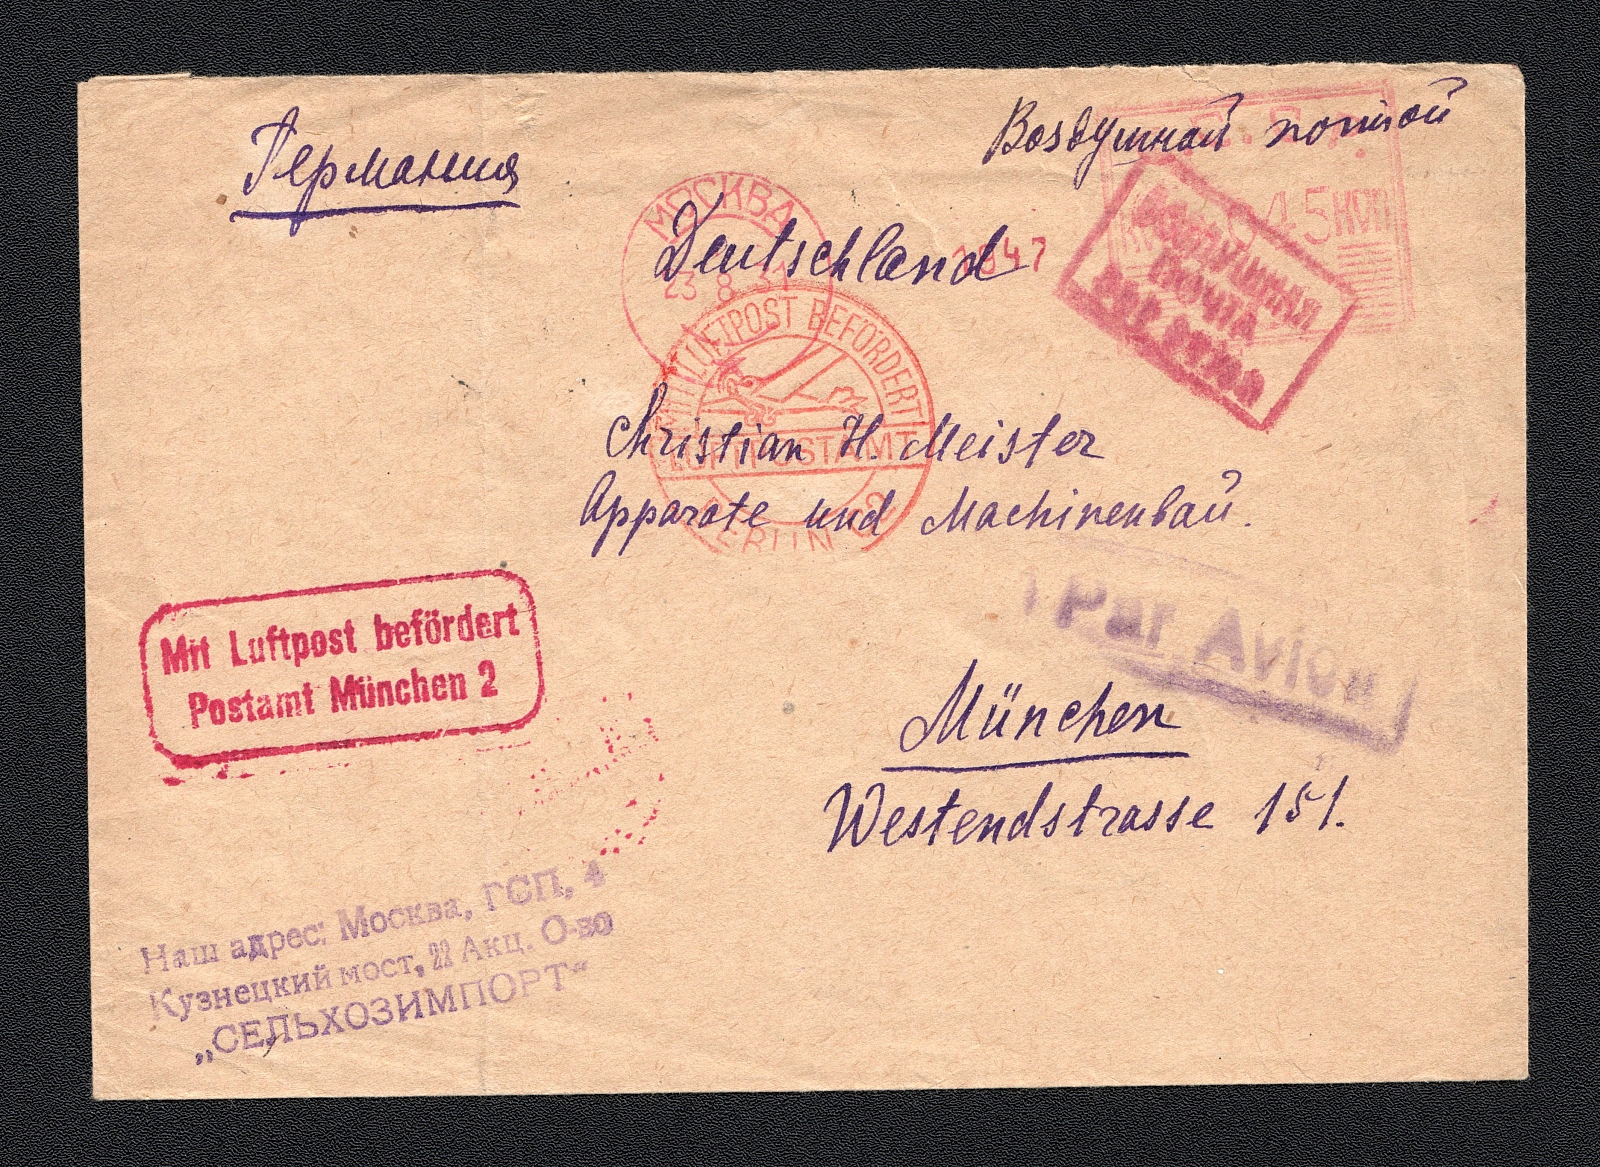 Германия
Воздушной почтой
МОСКВА
23 8 31
045 КОП
ВОЗДУШНАЯ
ПОЧТА
Deutschland
MIT LUFTPOST BEFÖRDERT
LUFTPOSTAMT
BERLIN
Christian H. Meister
Apparate und Machinenbau.
Mit Luftpost befördert
Postamt München 2
Par Avion
München
Westendstrasse 151.
Наш адрес: Москва, ГСП, 4
Кузнецкий мост, 22 Акц. О-во
„СЕЛЬХОЗИМПОРТ“